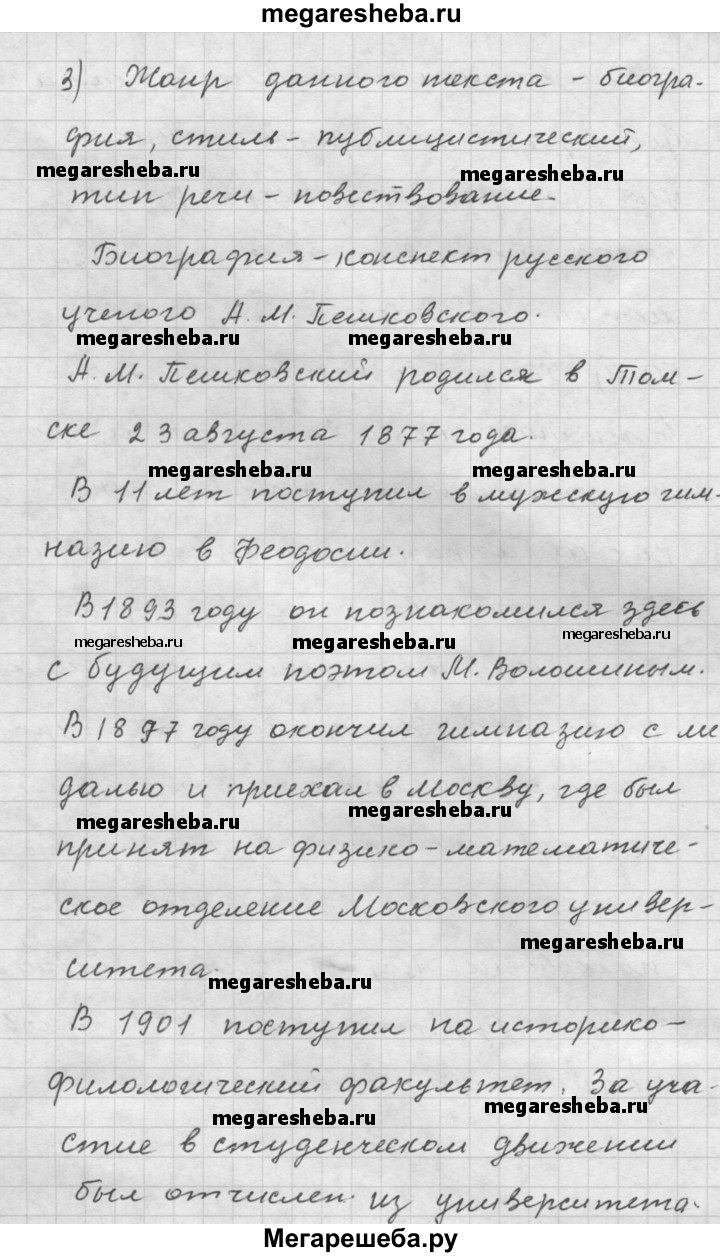 megaresheba.ru
3) Жанр данного текста - биогра-
фия, стиль - публицистический,
megaresheba.ru megaresheba.ru
тип речи - повествование.
Биография - конспект русского
ученого А. М. Пешковского.
megaresheba.ru megaresheba.ru
А. М. Пешковский родился в Том-
ске 23 августа 1877 года.
megaresheba.ru megaresheba.ru
В 11 лет поступил в мужскую гим-
назию в Феодосии.
В 1893 году он познакомился здесь
megaresheba.ru megaresheba.ru megaresheba.ru
с будущим поэтом М. Волошиным.
В 1897 году окончил гимназию с ме
далью и приехал в Москву, где был
megaresheba.ru megaresheba.ru
принят на физико-математиче-
ское отделение Московского универ-
megaresheba.ru
ситета.
megaresheba.ru
В 1901 поступил на историко-
филологический факультет. За уча-
megaresheba.ru megaresheba.ru
стие в студенческом движении
был отчислен из университета.
Мегарешеба.ру